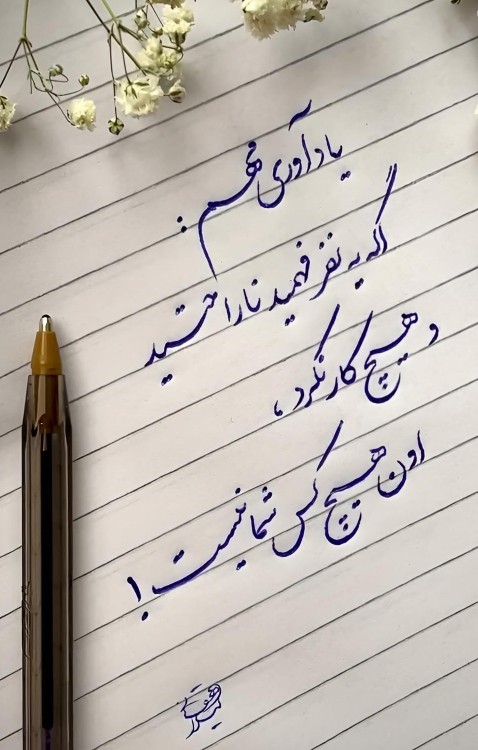 یادآوری مهم :
اگه یه نفر فهمید ناراحتید
و هیچ کار نکرد،
اون هیچ کس شما نیست!